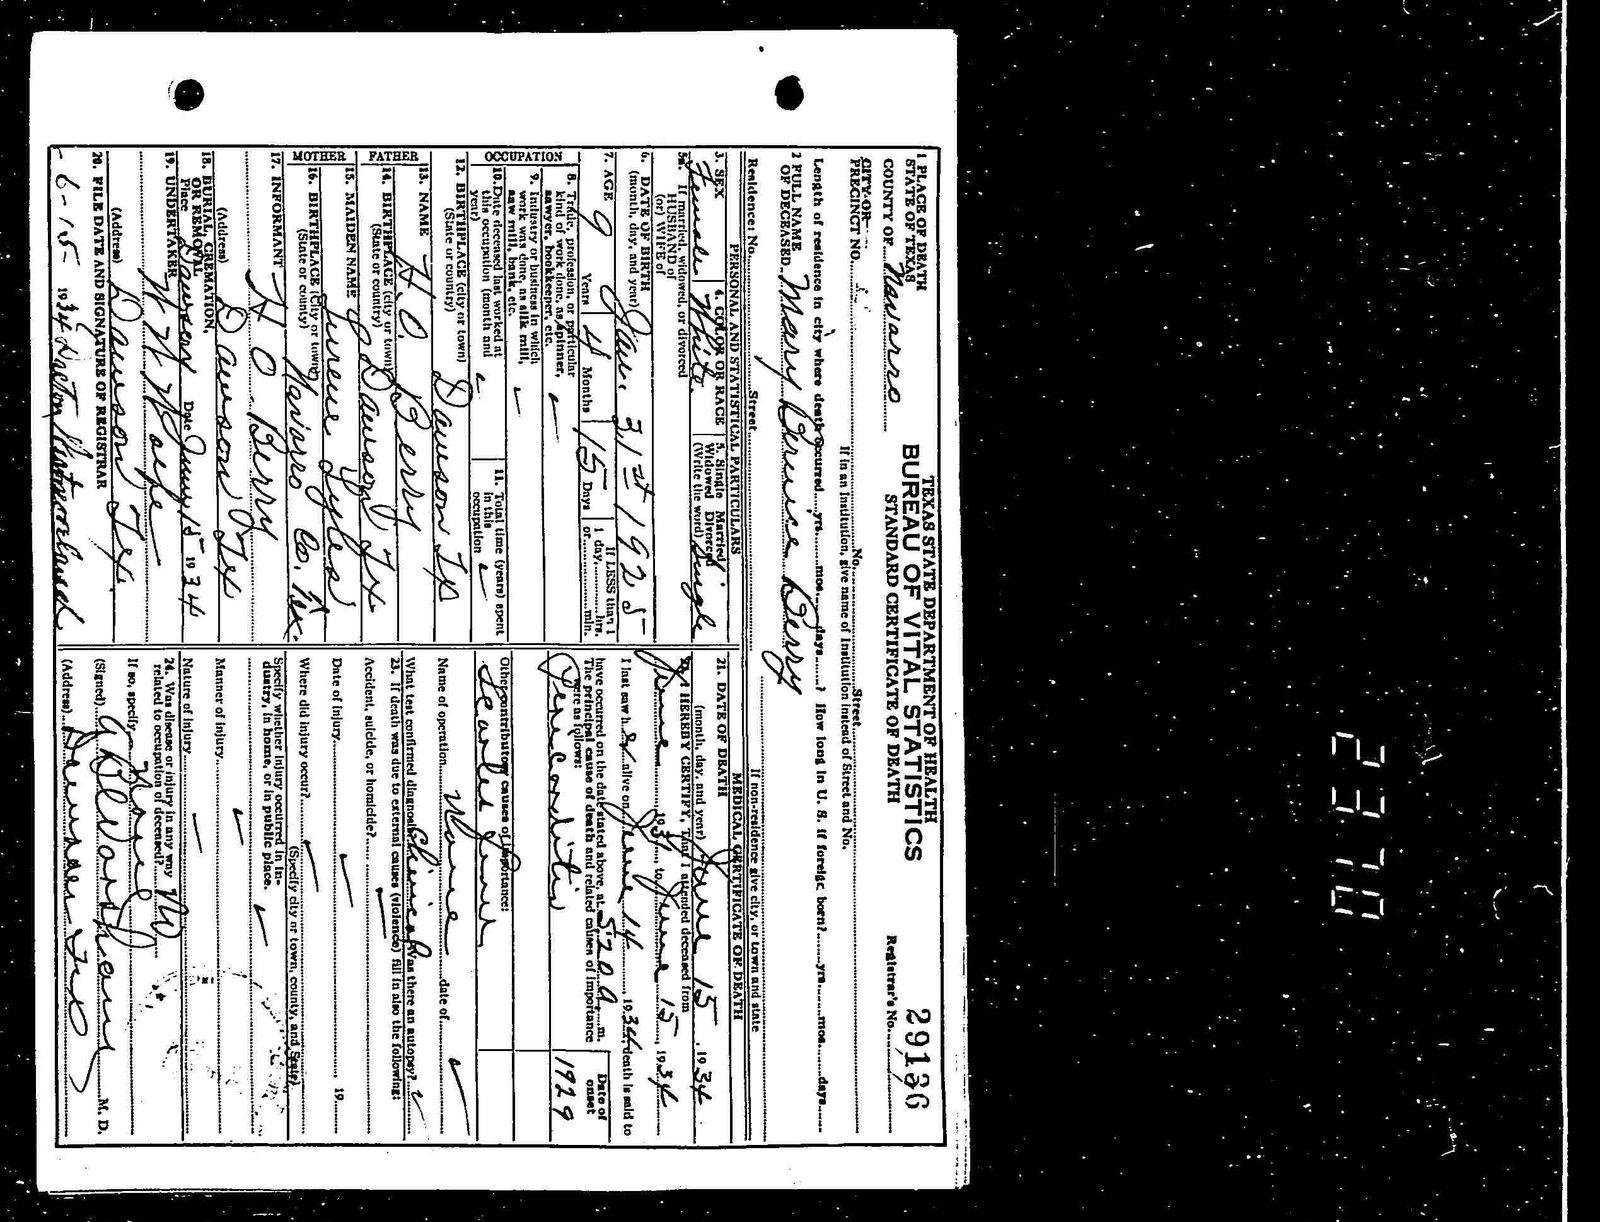 TEXAS STATE DEPARTMENT OF HEALTH
BUREAU OF VITAL STATISTICS
STANDARD CERTIFICATE OF DEATH
29136
Registrar's No.
1 PLACE OF DEATH
STATE OF TEXAS
COUNTY OF Navarro
CITY OR
PRECINCT NO. No. Street
If in an institution, give name of institution instead of Street and No.
Length of residence in city where death occurred yrs. mos. days ? How long in U. S. if foreign born? yrs. mos. days
2 FULL NAME
OF DECEASED Mary Bernice Berry
Residence: No. Street If non-residence give city, or town and state
PERSONAL AND STATISTICAL PARTICULARS
3. SEX
Female
4. COLOR OR RACE
White
5. Single Married
Widowed Divorced
(Write the word) Single
5a. If married, widowed, or divorced
HUSBAND of
(or) WIFE of
6. DATE OF BIRTH
(month, day, and year) Jan. 31st 1925
7. AGE 9 Years 4 Months 15 Days
If LESS than 1
1 day, hrs.
or min.
OCCUPATION
8. Trade, profession, or particular
kind of work done, as spinner,
sawyer, bookkeeper, etc.
9. Industry or business in which
work was done, as silk mill,
saw mill, bank, etc.
10. Date deceased last worked at
this occupation (month and
year)
11. Total time (years) spent
in this
occupation
12. BIRTHPLACE (city or town) Dawson Tx
(State or country)
FATHER
13. NAME H. O. Berry
14. BIRTHPLACE (city or town) Dawson, Tx
(State or country)
MOTHER
15. MAIDEN NAME Lurene Lyles
16. BIRTHPLACE (city or town) Navarro Co. Tex.
(State or county)
17. INFORMANT H O Berry
(Address) Dawson Tex
18. BURIAL, CREMATION,
OR REMOVAL
Place Dawson Date June 15 1934
19. UNDERTAKER W W Wolfe
(Address) Dawson Tex.
20. FILE DATE AND SIGNATURE OF REGISTRAR
6-15- 1934
MEDICAL CERTIFICATE OF DEATH
21. DATE OF DEATH
(month, day, and year) June 15, 1934
22. I HEREBY CERTIFY, That I attended deceased from
June 1934 to June 15, 1934
I last saw her alive on June 14, 1934, death is said to
have occurred on the date stated above, at 5:20 a m.
The principal cause of death and related causes of importance
were as follows:
Date of
onset
Pericarditis 1929
Other contributory causes of importance:
Scarlet fever
Name of operation None date of
What test confirmed diagnosis? Clinical Was there an autopsy?
23. If death was due to external causes (violence) fill in also the following:
Accident, suicide, or homicide?
Date of injury 19
Where did injury occur?
(Specify city or town, county, and State)
Specify whether injury occurred in in-
dustry, in home, or in public place.
Manner of injury
Nature of injury
24. Was disease or injury in any way
related to occupation of deceased? No
If so, specify None
(Signed) M. D.
(Address) Dawson